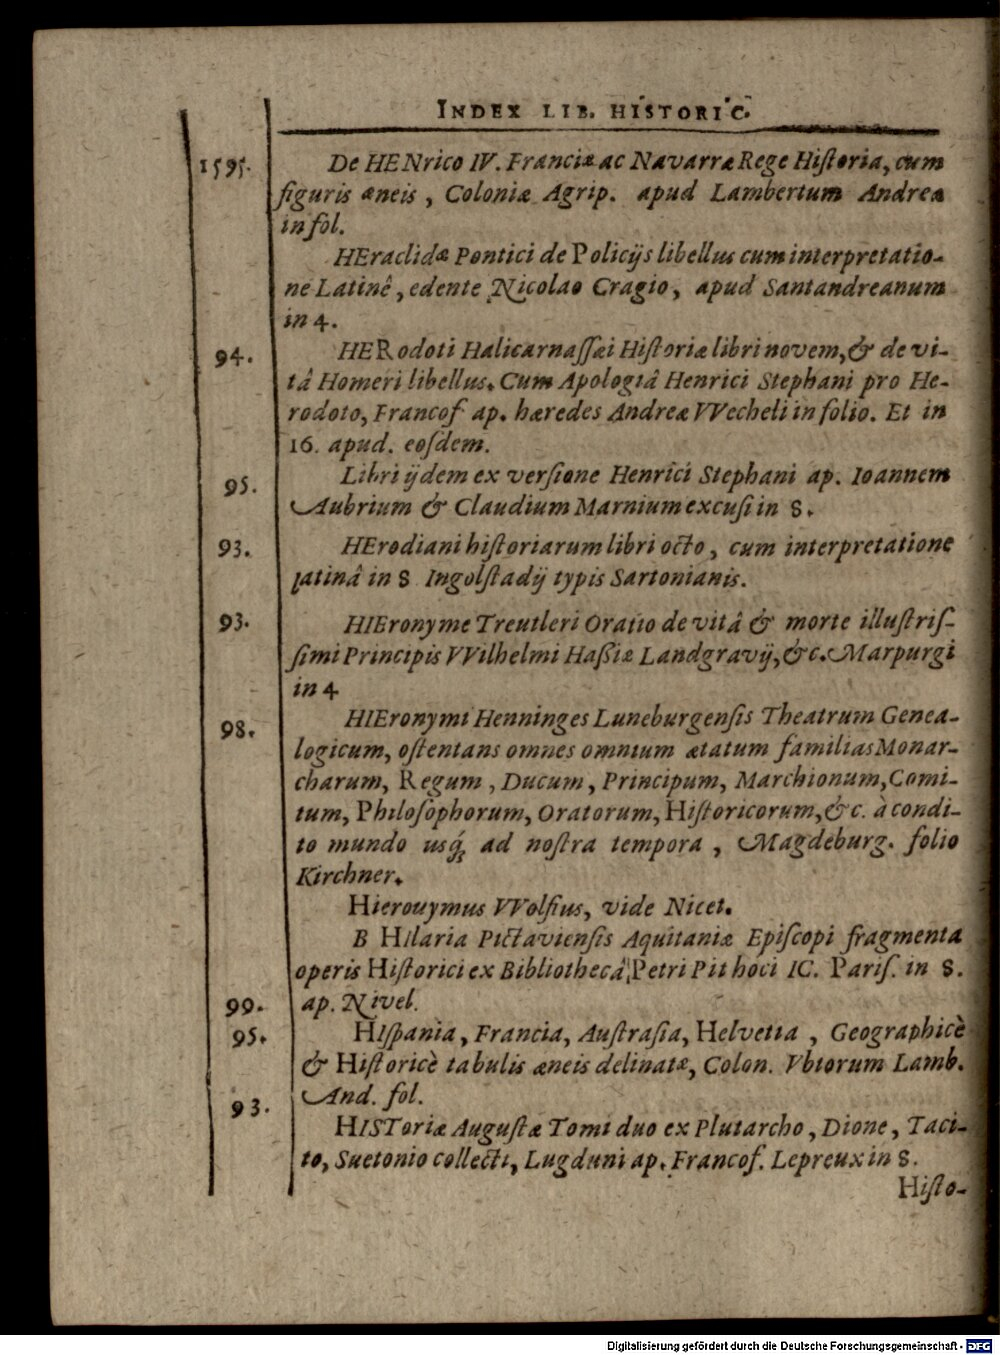 INDEX LIB. HISTORIC.
1595. De HENrico IV. Franciæ ac Navarræ Rege Historia, cum
figuris æneis, Coloniæ Agrip. apud Lambertum Andreæ
in fol.
HEraclidæ Pontici de Policijs libellus cum interpretatio-
ne Latinê, edente Nicolao Cragio, apud Santandreanum
in 4.
94. HERodoti Halicarnassæi Historiæ libri novem, & de vi-
tâ Homeri libellus. Cum Apologiâ Henrici Stephani pro He-
rodoto, Francof ap. hæredes Andreæ VVecheli in folio. Et in
16. apud. eosdem.
95. Libri ijdem ex versione Henrici Stephani ap. Ioannem
Aubrium & Claudium Marnium excusi in 8.
93. HErodiani historiarum libri octo, cum interpretatione
latinâ in 8 Ingolstadij typis Sartonianis.
93. HIEronyme Treutleri Oratio de vitâ & morte illustris-
simi Principis VVilhelmi Haßiæ Landgravij, &c. Marpurgi
in 4
98. HIEronymi Henninges Luneburgensis Theatrum Genea-
logicum, ostentans omnes omnium ætatum familias Monar-
charum, Regum, Ducum, Principum, Marchionum, Comi-
tum, Philosophorum, Oratorum, Historicorum, &c. à condi-
to mundo usq́; ad nostra tempora, Magdeburg. folio
Kirchner.
Hierouymus VVolfius, vide Nicet.
B Hilaria Pictaviensis Aquitaniæ Episcopi fragmenta
operis Historici ex Bibliothecâ Petri Pithoci IC. Paris. in 8.
99. ap. Nivel.
95. HIspania, Francia, Austrasia, Helvetia, Geographicè
& Historicè tabulis æneis delinatæ, Colon. Vbiorum Lamb.
And. fol.
93. HISToriæ Augustæ Tomi duo ex Plutarcho, Dione, Taci-
to, Suetonio collecti, Lugduni ap. Francof. Lepreux in 8.
Histo-
Digitalisierung gefördert durch die Deutsche Forschungsgemeinschaft - DFG